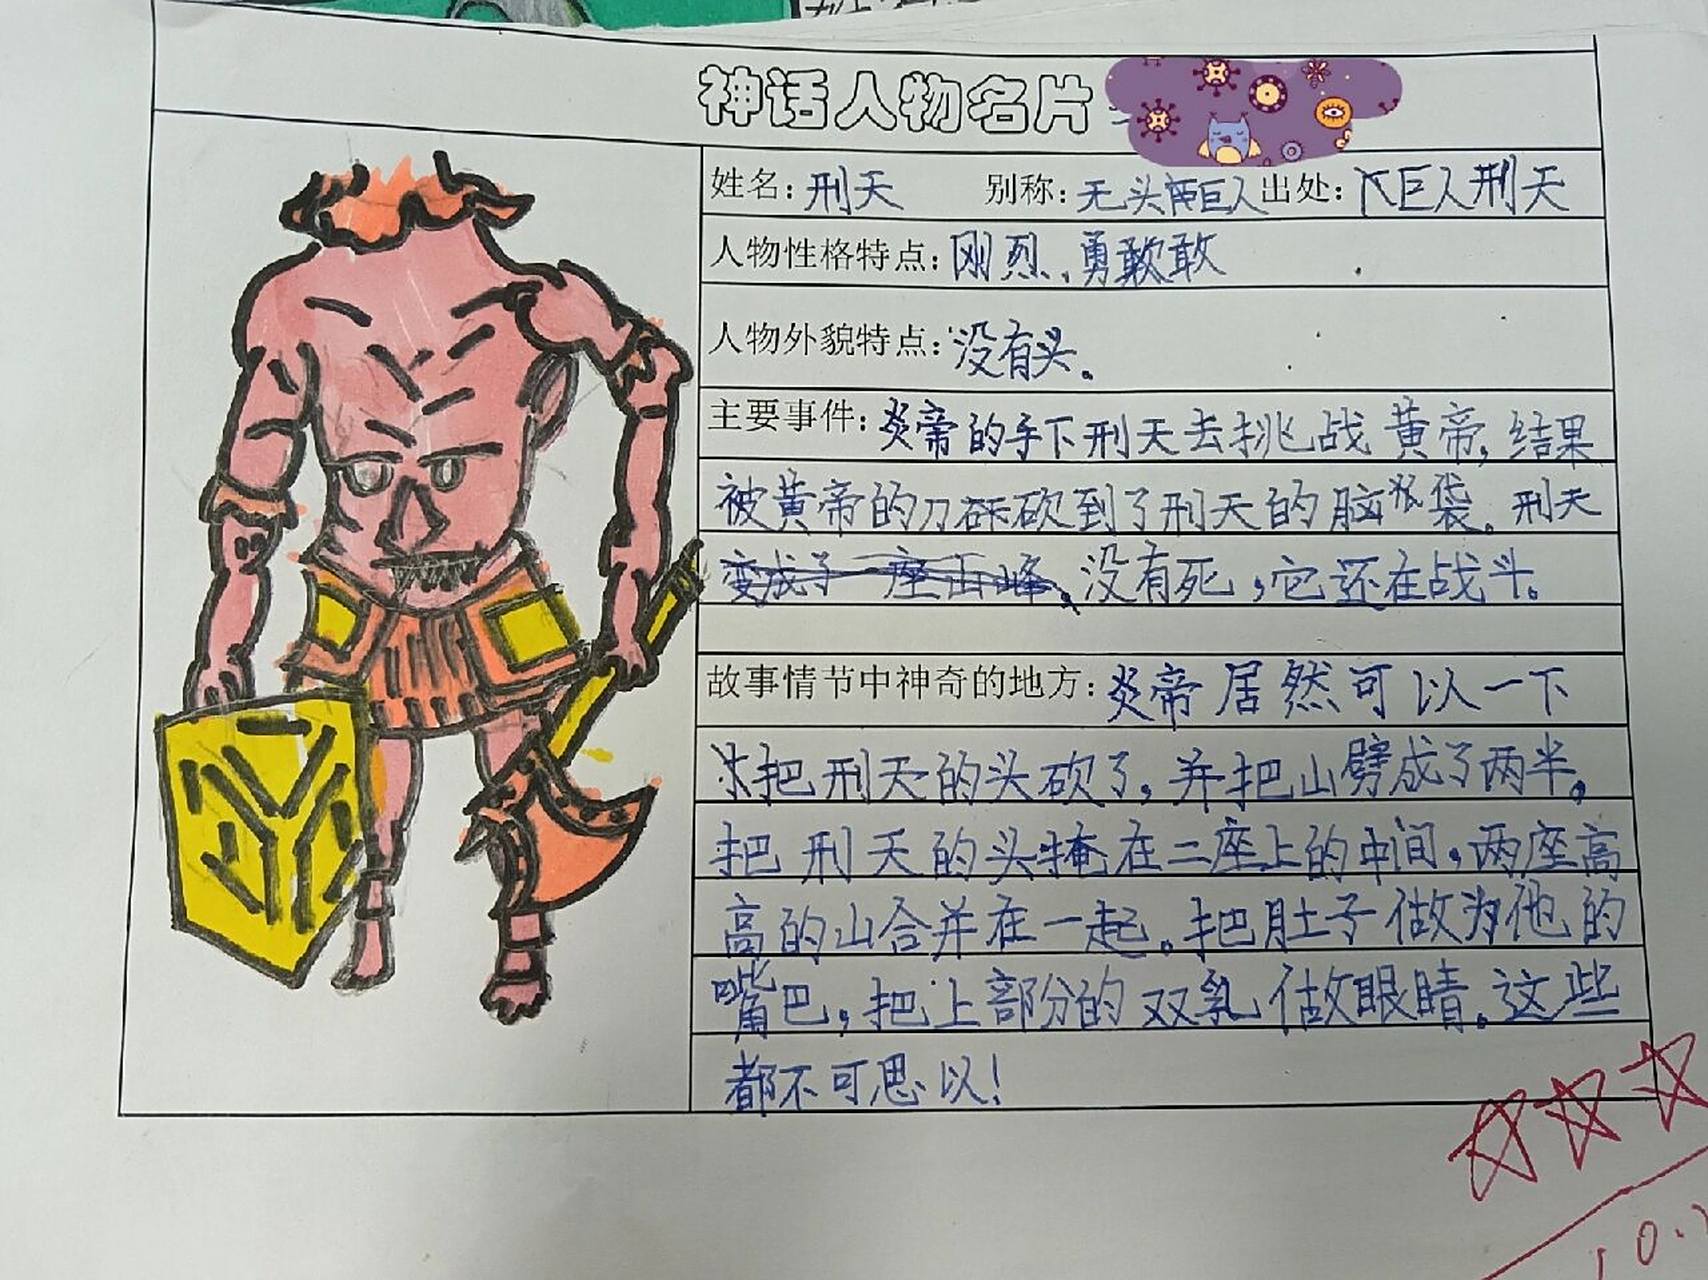 神话人物名片
姓名：刑天 别称：无头巨人 出处：《巨人刑天
人物性格特点：刚烈、勇敢
人物外貌特点：没有头。
主要事件：炎帝的手下刑天去挑战黄帝，结果
被黄帝的刀砍到了刑天的脑袋。刑天
变成了一座山峰，没有死，它还在战斗。
故事情节中神奇的地方：炎帝居然可以一下
把刑天的头砍了，并把山劈成了两半。
把刑天的头掩在二座上的中间，两座高
高的山合并在一起。把肚子做为他的
嘴巴，把上部分的双乳做眼睛。这些
都不可思以！
10.